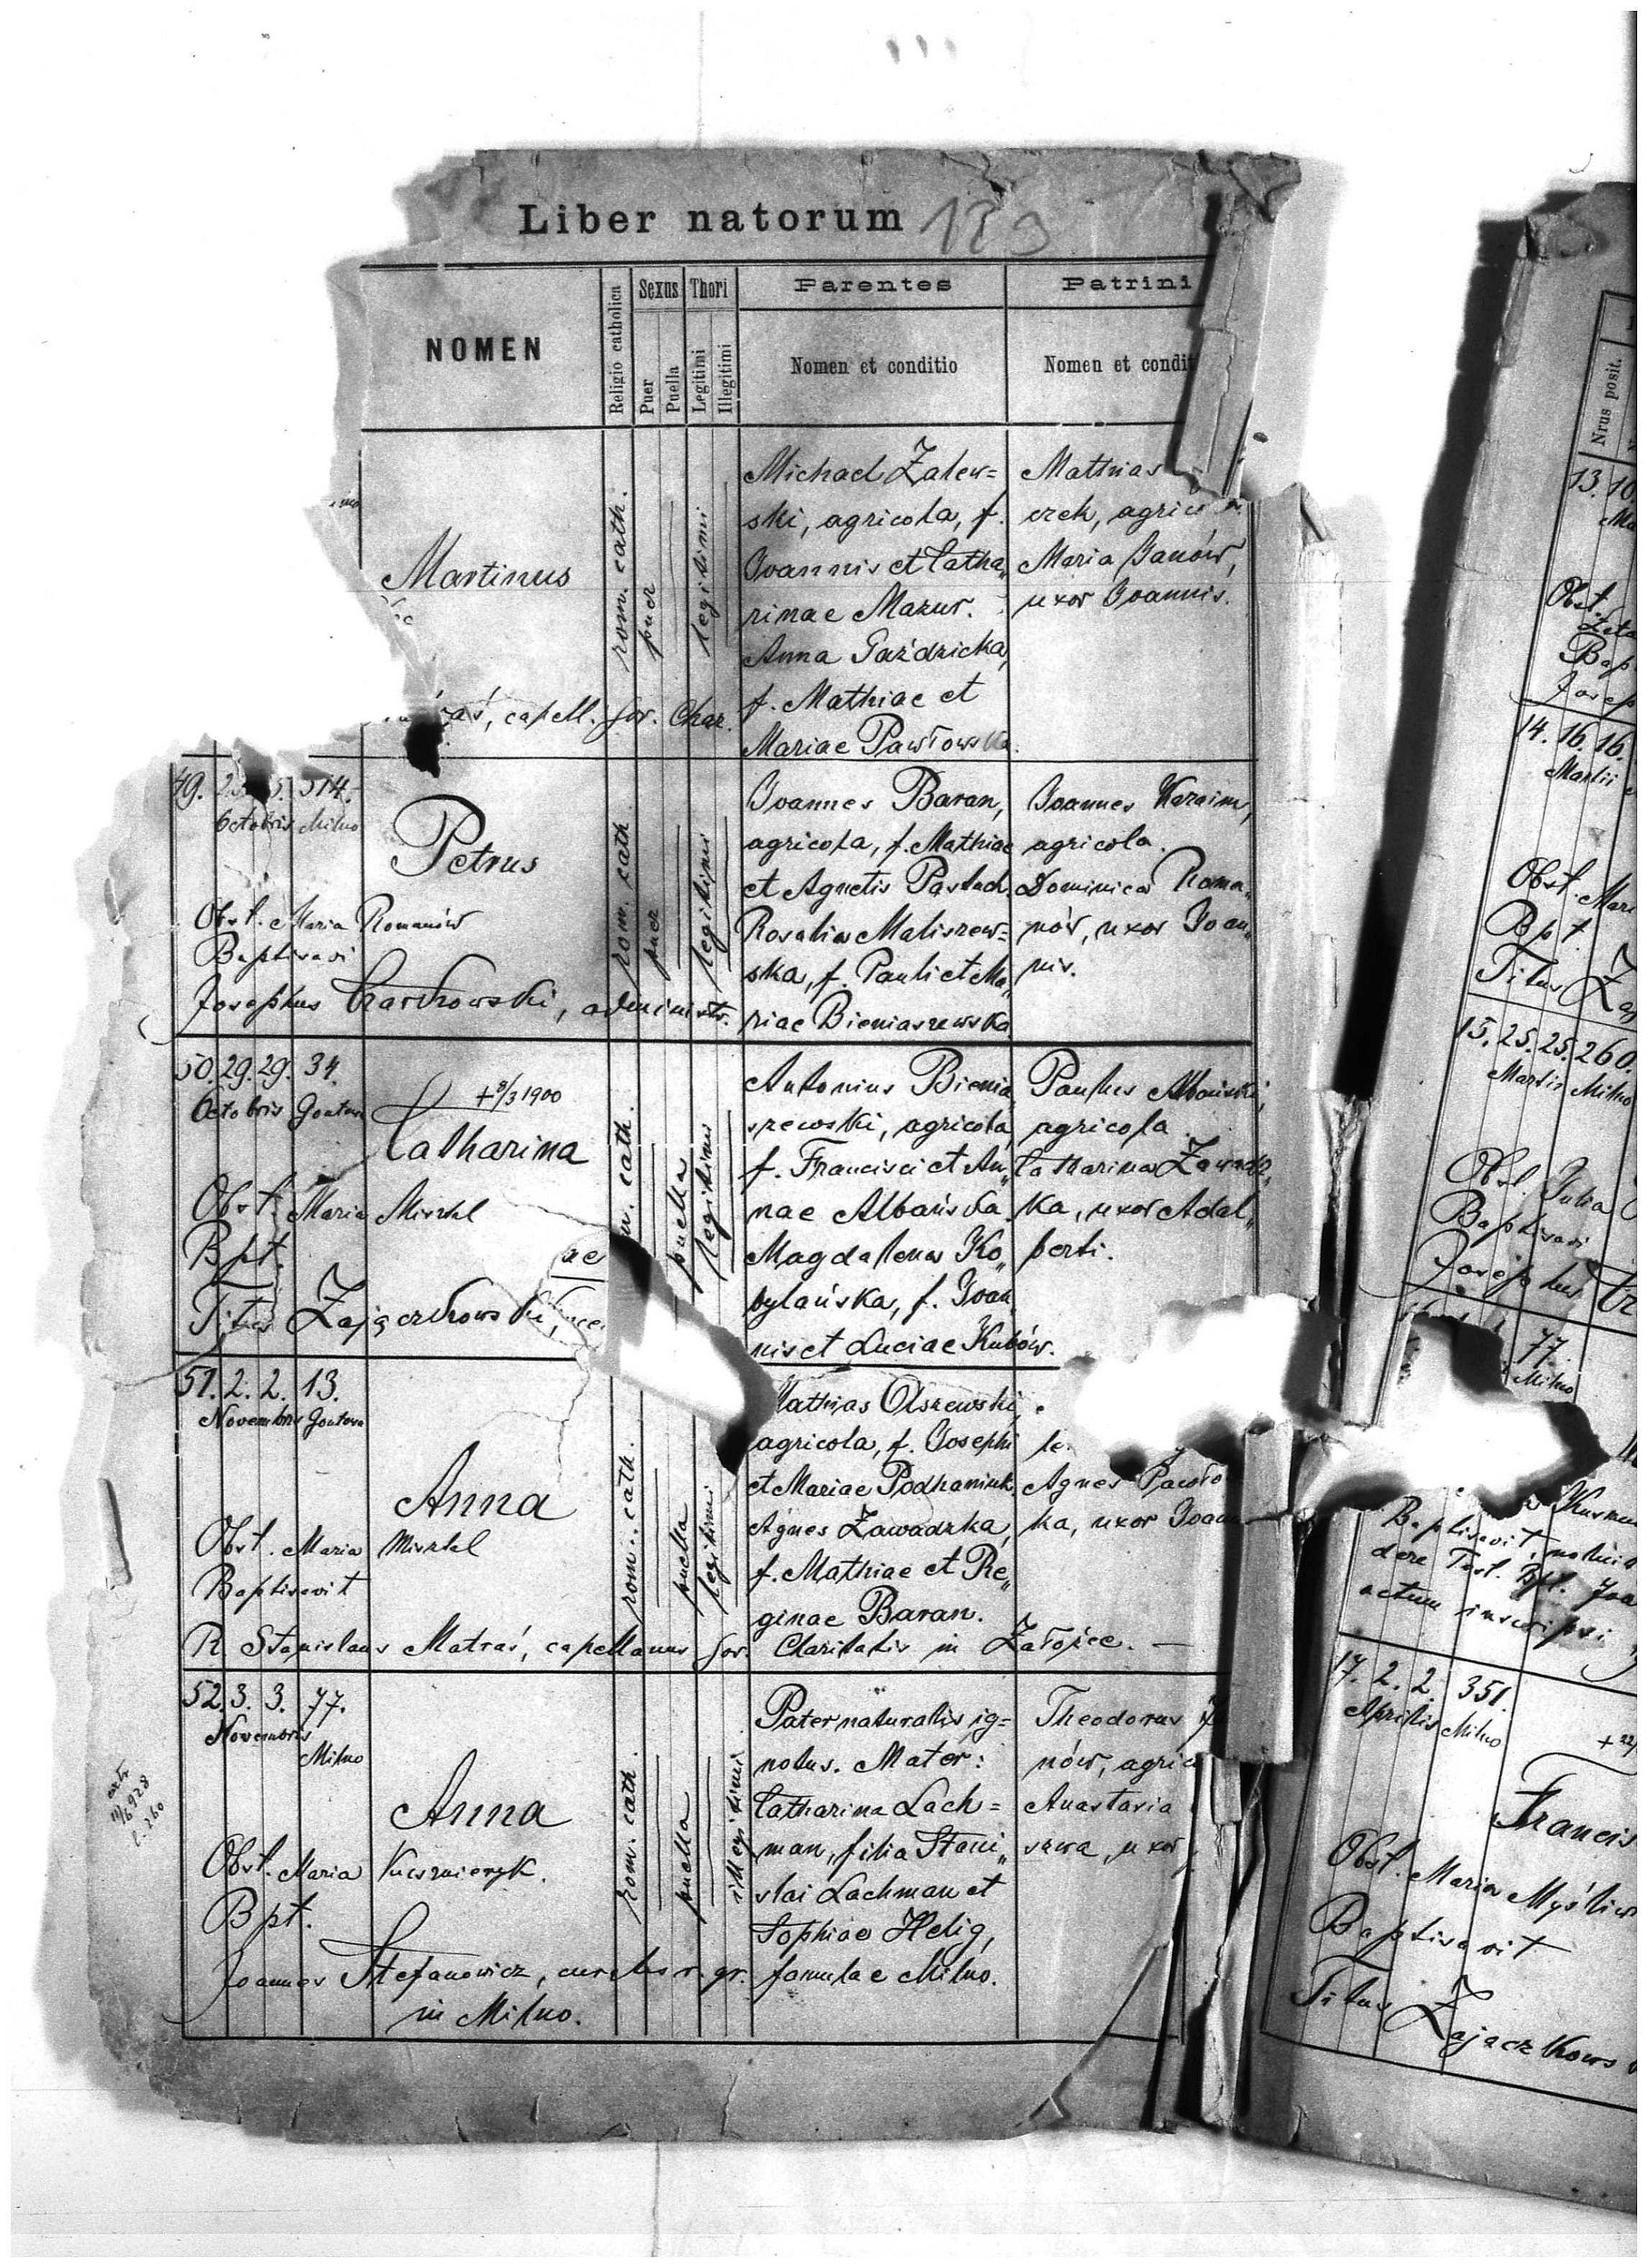 Liber natorum
NOMEN
Religio catholica
Sexus
Puer
Puella
Thori
Legitimi
Illegitimi
Parentes
Nomen et conditio
Patrini
Nomen et condit
Martinus
rom. cath.
puer
legitimi
Michael Zalew=
ski, agricola, f.
Joannis et Catha„
rinae Mazur.
Anna Paździcka,
f. Mathiae et
Mariae Pawłowska.
Mathias
czek, agrico
Maria Janów,
uxor Joannis.
capell. sor. Char.
49. 514.
Octobris Milno
Petrus
Obst. Maria Romanów
Baptisavi
Josephus Czartkowski, administr.
rom. cath.
puer
legitimi
Joannes Baran,
agricola, f. Mathiae
et Agnetis Pastuch.
Rosalia Maliszew=
ska, f. Pauli et Ma„
riae Bieniaszewska
Joannes Karaim,
agricola.
Dominica Roma„
nów, uxor Joan„
nis.
50. 29. 29. 34.
Octobris Gontowa
+ 9/3 1900
Catharina
Obst. Maria Misztal
Bpt.
Titus Zajączkowski,
cath.
puella
legitimi
Antonius Bienia„
szewski, agricola,
f. Francisci et An„
nae Albańska.
Magdalena Ko„
bylańska, f. Joan„
nis et Luciae Kubów.
Paulus Albański,
agricola.
Catharina Zawadz„
ka, uxor Adal„
berti.
51. 2. 2. 13.
Novembris Gontowa
Anna
Obst. Maria Misztal
Baptisavit
R Stanislaus Matraś, capellanus sor. Charitatis in Załoźce. —
rom. cath.
puella
legitimi
Mathias Olszewski,
agricola, f. Josephi
et Mariae Podhaniuk.
Agnes Zawadzka,
f. Mathiae et Re„
ginae Baran.
Agnes Pawło
ka, uxor Joann
52. 3. 3. 77.
Novembris
Milno
Anna
Obst. Maria Kusznieryk.
Bpt.
Joannes Stefanowicz, curatus r. gr.
in Milno.
rom. cath.
puella
illegitimi
Pater naturalis ig=
notus. Mater:
Catharina Lach=
man, filia Stani„
slai Lachman et
Sophiae Helig,
famula e Milno.
Theodorus
nów, agric
Anastasia
szwa, uxor
Nrus posit.
13. 10
Obst.
Bap
Josep
14. 16. 16.
Martii
Obst. Mari
Bpt.
Titus Zaj
15. 25. 25. 260.
Martii Milno
Obst. Julia
Baptisavi
Josephus Cz
77.
Milno
Baptisavit
actum inscripsi
17. 2. 2. 351.
Aprilis Milno
Francis
Obst. Maria Myśliw
Baptisavit
Titus Zajączkows